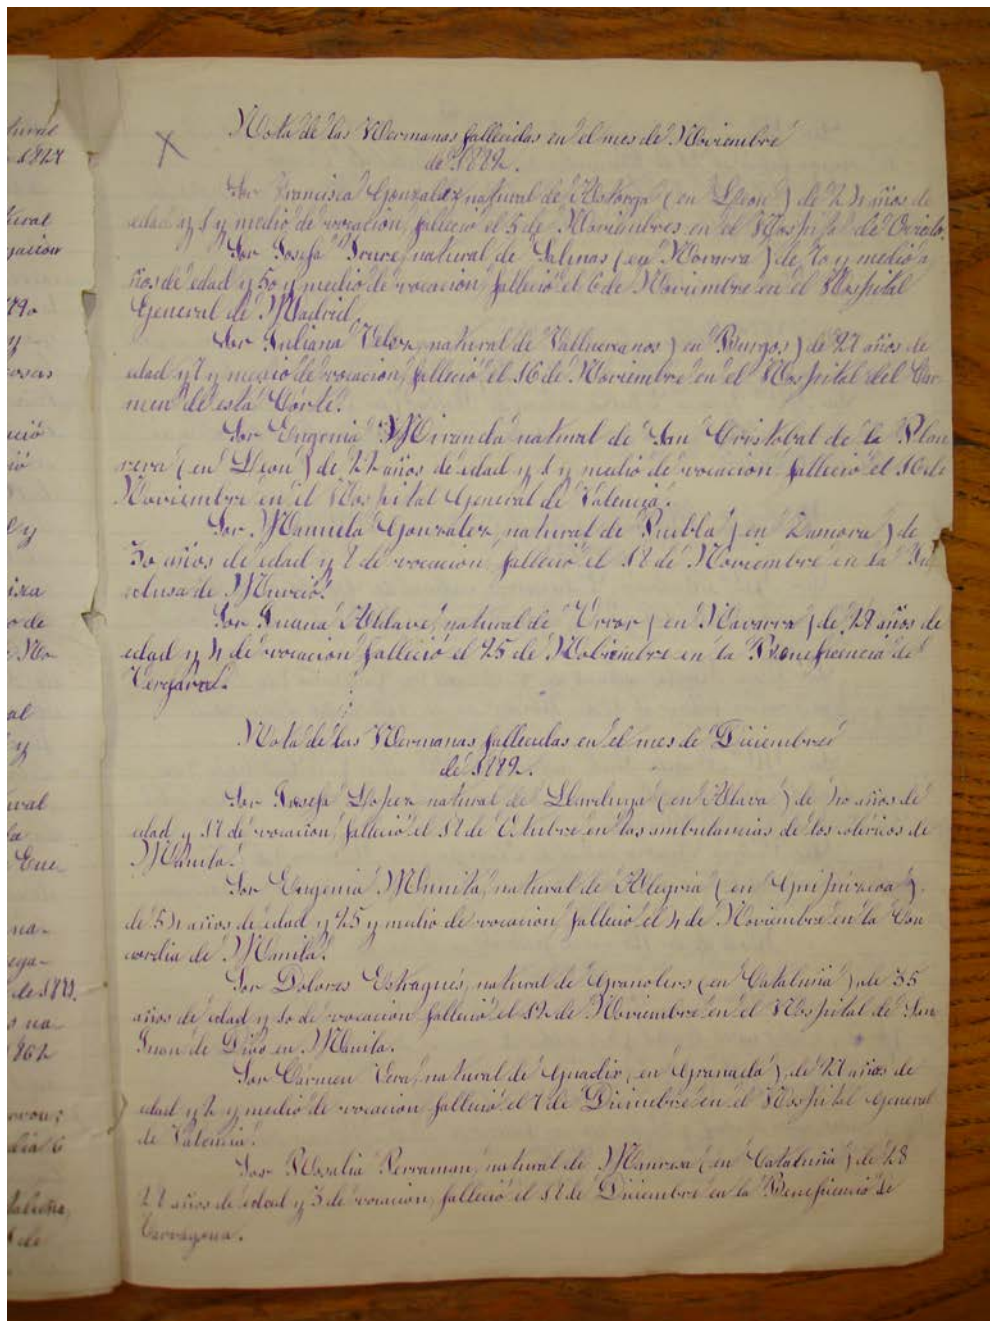 Nota de las Hermanas fallecidas en el mes de Noviembre
de 1882.
Sor Francisca Gonzalez natural de Astorga (en Leon) de 24 años de
edad y 1 y medio de vocacion, falleció el 5 de Noviembres en el Hospital de Oviedo.
Sor Josefa Irure, natural de Salinas (en Navarra) de 70 y medio a
ños de edad y 50 y medio de vocacion, falleció el 6 de Noviembre en el Hospital
General de Madrid.
Sor Juliana Velez, natural de (en Burgos) de 27 años de
edad y 7 y medio de vocacion, falleció el 16 de Noviembre en el Hospital del Car-
men de esta Córte.
Sor Eugenia Miranda natural de San Cristobal de la
(en Leon) de 22 años de edad y 1 y medio de vocacion falleció el 16 de
Noviembre en el Hospital General de Valencia.
Sor Manuela Gonzalez, natural de Puebla (en Zamora) de
30 años de edad y 8 de vocacion, falleció el 18 de Noviembre en la In
clusa de Murcia.
Sor Juana Aldave, natural de (en Navarra) de 28 años de
edad y 4 de vocacion falleció el 25 de Nobiembre en la Beneficencia de
Vergara.
Nota de las Hermanas fallecidas en el mes de Diciembres
de 1882.
Sor Josefa Lopez natural de (en Alava) de 40 años de
edad y 17 de vocacion, falleció el 18 de Octubre en las ambulancias de los coléricos de
Manila.
Sor Eugenia Munita, natural de Alegria (en Guipuzcoa)
de 54 años de edad y 25 y medio de vocacion falleció el 4 de Noviembre en la Con
cordia de Manila.
Sor Dolores Estragués, natural de Granollers (en Cataluña), de 35
años de edad y 10 de vocacion falleció el 12 de Noviembre en el Hospital de San
Juan de Dios en Manila.
Sor Cármen Vera, natural de Guadix (en Granada), de 27 años de
edad y 2 y medio de vocacion falleció el 7 de Diciembre en el Hospital General
de Valencia.
Sor Rosalia Perraman, natural de Manresa (en Cataluña) de 28
años de edad y 3 de vocacion, falleció el 18 de Diciembre en la Beneficencia de
Tarragona.